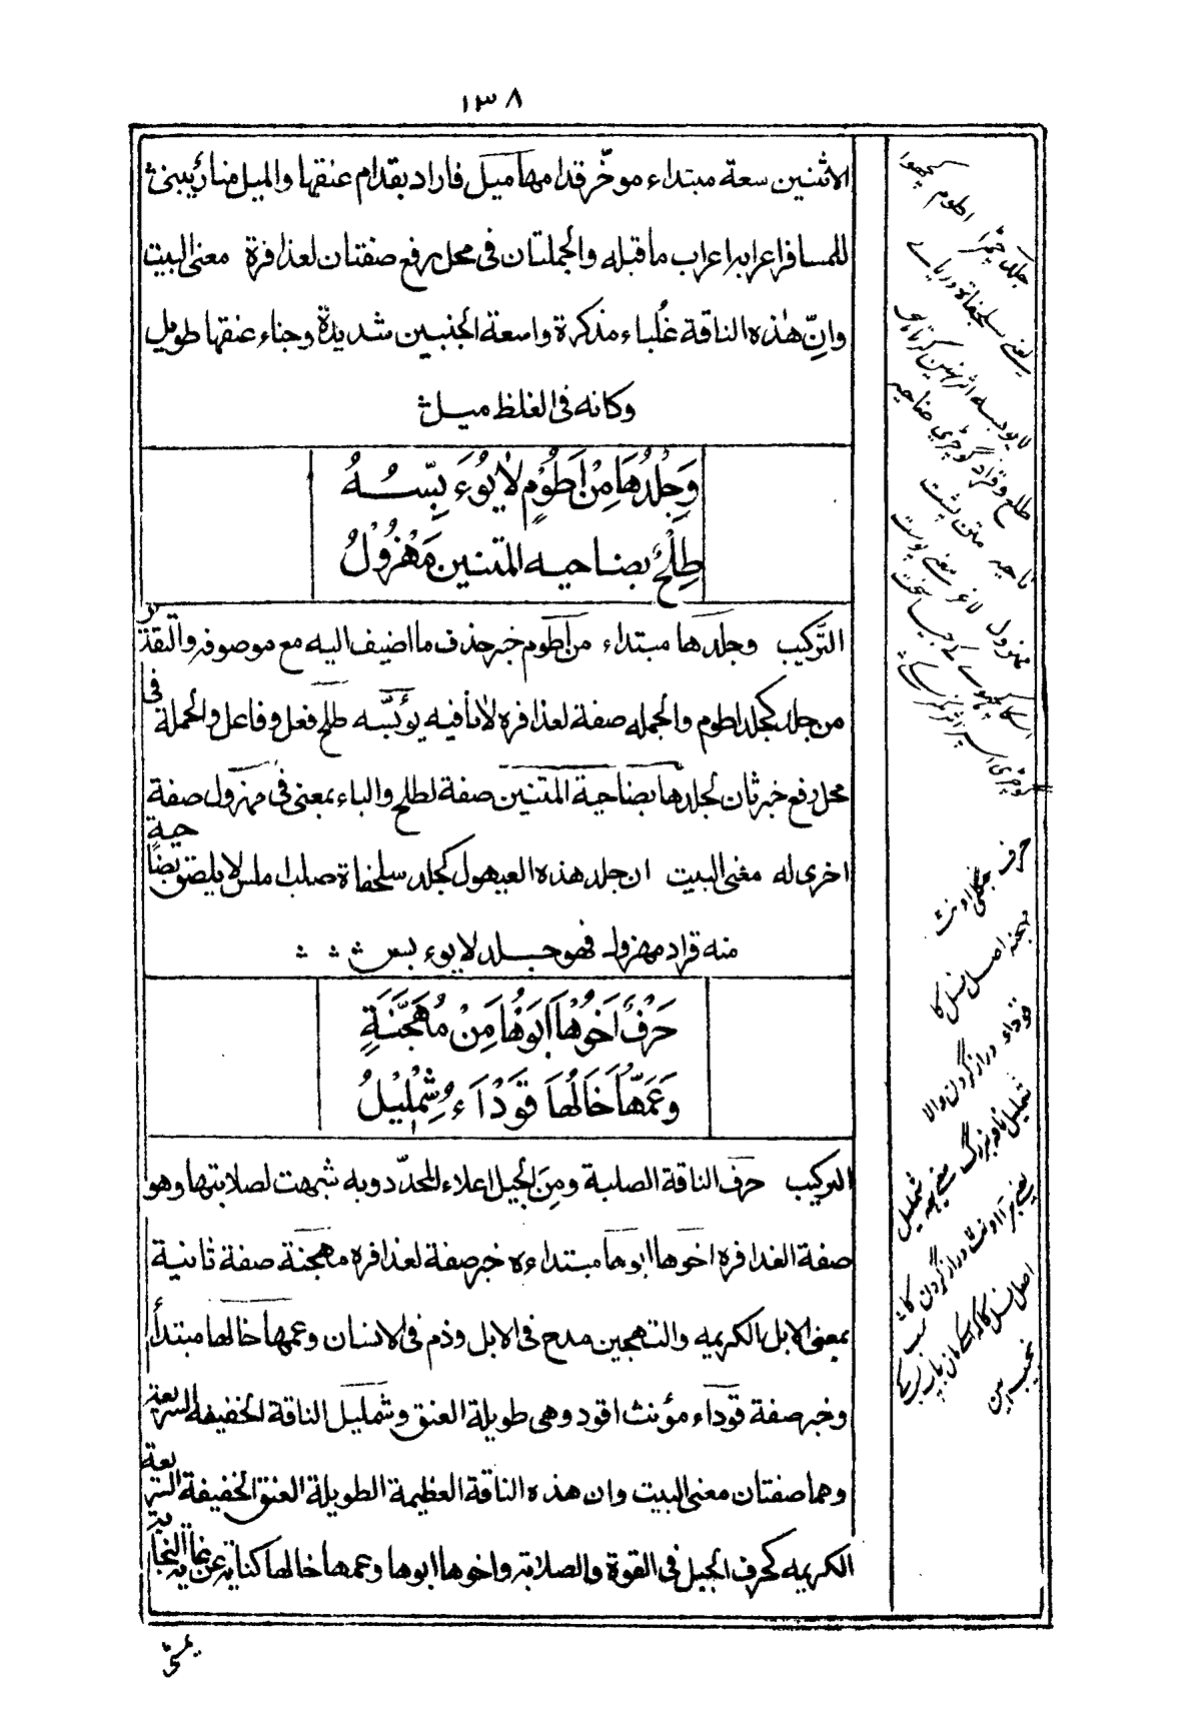 ١٣٨
الاثنين سعة مبتداء موخّر قدامها ميل فاراد بقدام عنقها والميل منار يبنى
للمسافر اعرابه اعراب ما قبله والجملتان فى محل رفع صفتان لعذافرة معنى البيت
وانّ هٰذه الناقة غُلباء مذكرة واسعة الجنبين شديدة وجناء عنقها طويل
وكانه فى الغلظ ميل
وَجِلْدُهَا مِنْ اَطُوْمٍ لٰا يُوَءَ بِّسُــهُ
طِلْحٌ بضاحيه المتنين مَهْزُوْلُ
التّركيب وجلدها مبتداء من اطوم خبر حذف ما اضيف اليه مع موصوفه والتقدير
من جلد كجلد اطوم والجمله صفة لعذافره لا نافيه يؤبّسه طلح فعل وفاعل والجملة فى
محل رفع خبر ثان لجلدها بضاحية المتنين صفة لطلح والباء بمعنى فى مهزول صفة
اخرى له معنى البيت ان جلد هذه العيهول كجلد سلحفاة صلب املس لا يلصق بضاحية
منه قراد مهزول فهو جلد لا يوء بس
حَرْفٌ اَخُوْهَا اَبُوْهَا مِنْ مُهَجَّنَةٍ
وَعَمّهَا خَالُهَا قَوْدَاءُ شِمْلِيْلُ
التركيب حرف الناقة الصلبة ومن الجبل اعلاه المحدد وبه شبهت لصلابتها وهو
صفة العذافره اخوها ابوها مبتداء ه خبر صفة لعذافره مهجنة صفة ثانية
بمعنى الابل الكريمه والتهجين مدح فى الابل وذم فى الانسان وعمها خالها مبتدأ
وخبر صفة قوداء مؤنث اقود وهى طويلة العنق وشمليل الناقة الخفيفه السريعة
وهما صفتان معنى البيت وان هذه الناقة العظيمة الطويلة العنق الخفيفة السريعة
الكريمه كحرف الجبل فى القوة والصلابة واخوها ابوها وعمها خالها كناية عن نهاية النجابة
جلد چمڑا اطوم كچهوا
يعنے سلحفاة دريائے
لا يوبسه اثر نہين كرتا
طلح قراد
ناحيه متن پشت
مهزول لاغر معنے پوست
حرف جنگلى اونٹ
مهجنه اصل نسل كا
قوداء دراز گردن والا
شمليل
يعنے اونٹ دراز گردن كا
اصل نسل كا كه اسكے مان باپ سب
نجيب ہين